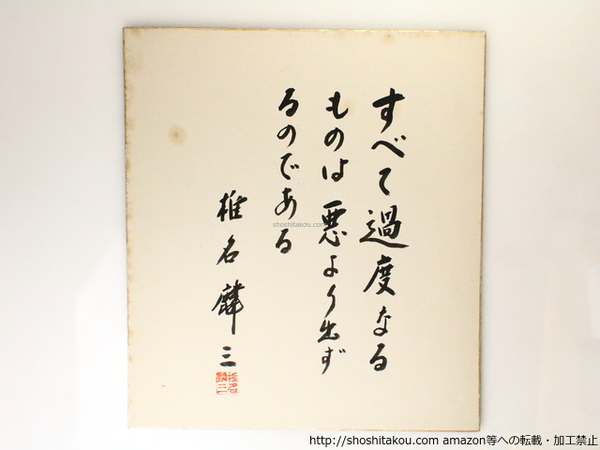 すべて過度なる
ものは悪より出ず
るのである
椎名麟三
椎名麟三
shoshitakou.com
http://shoshitakou.com amazon等への転載・加工禁止